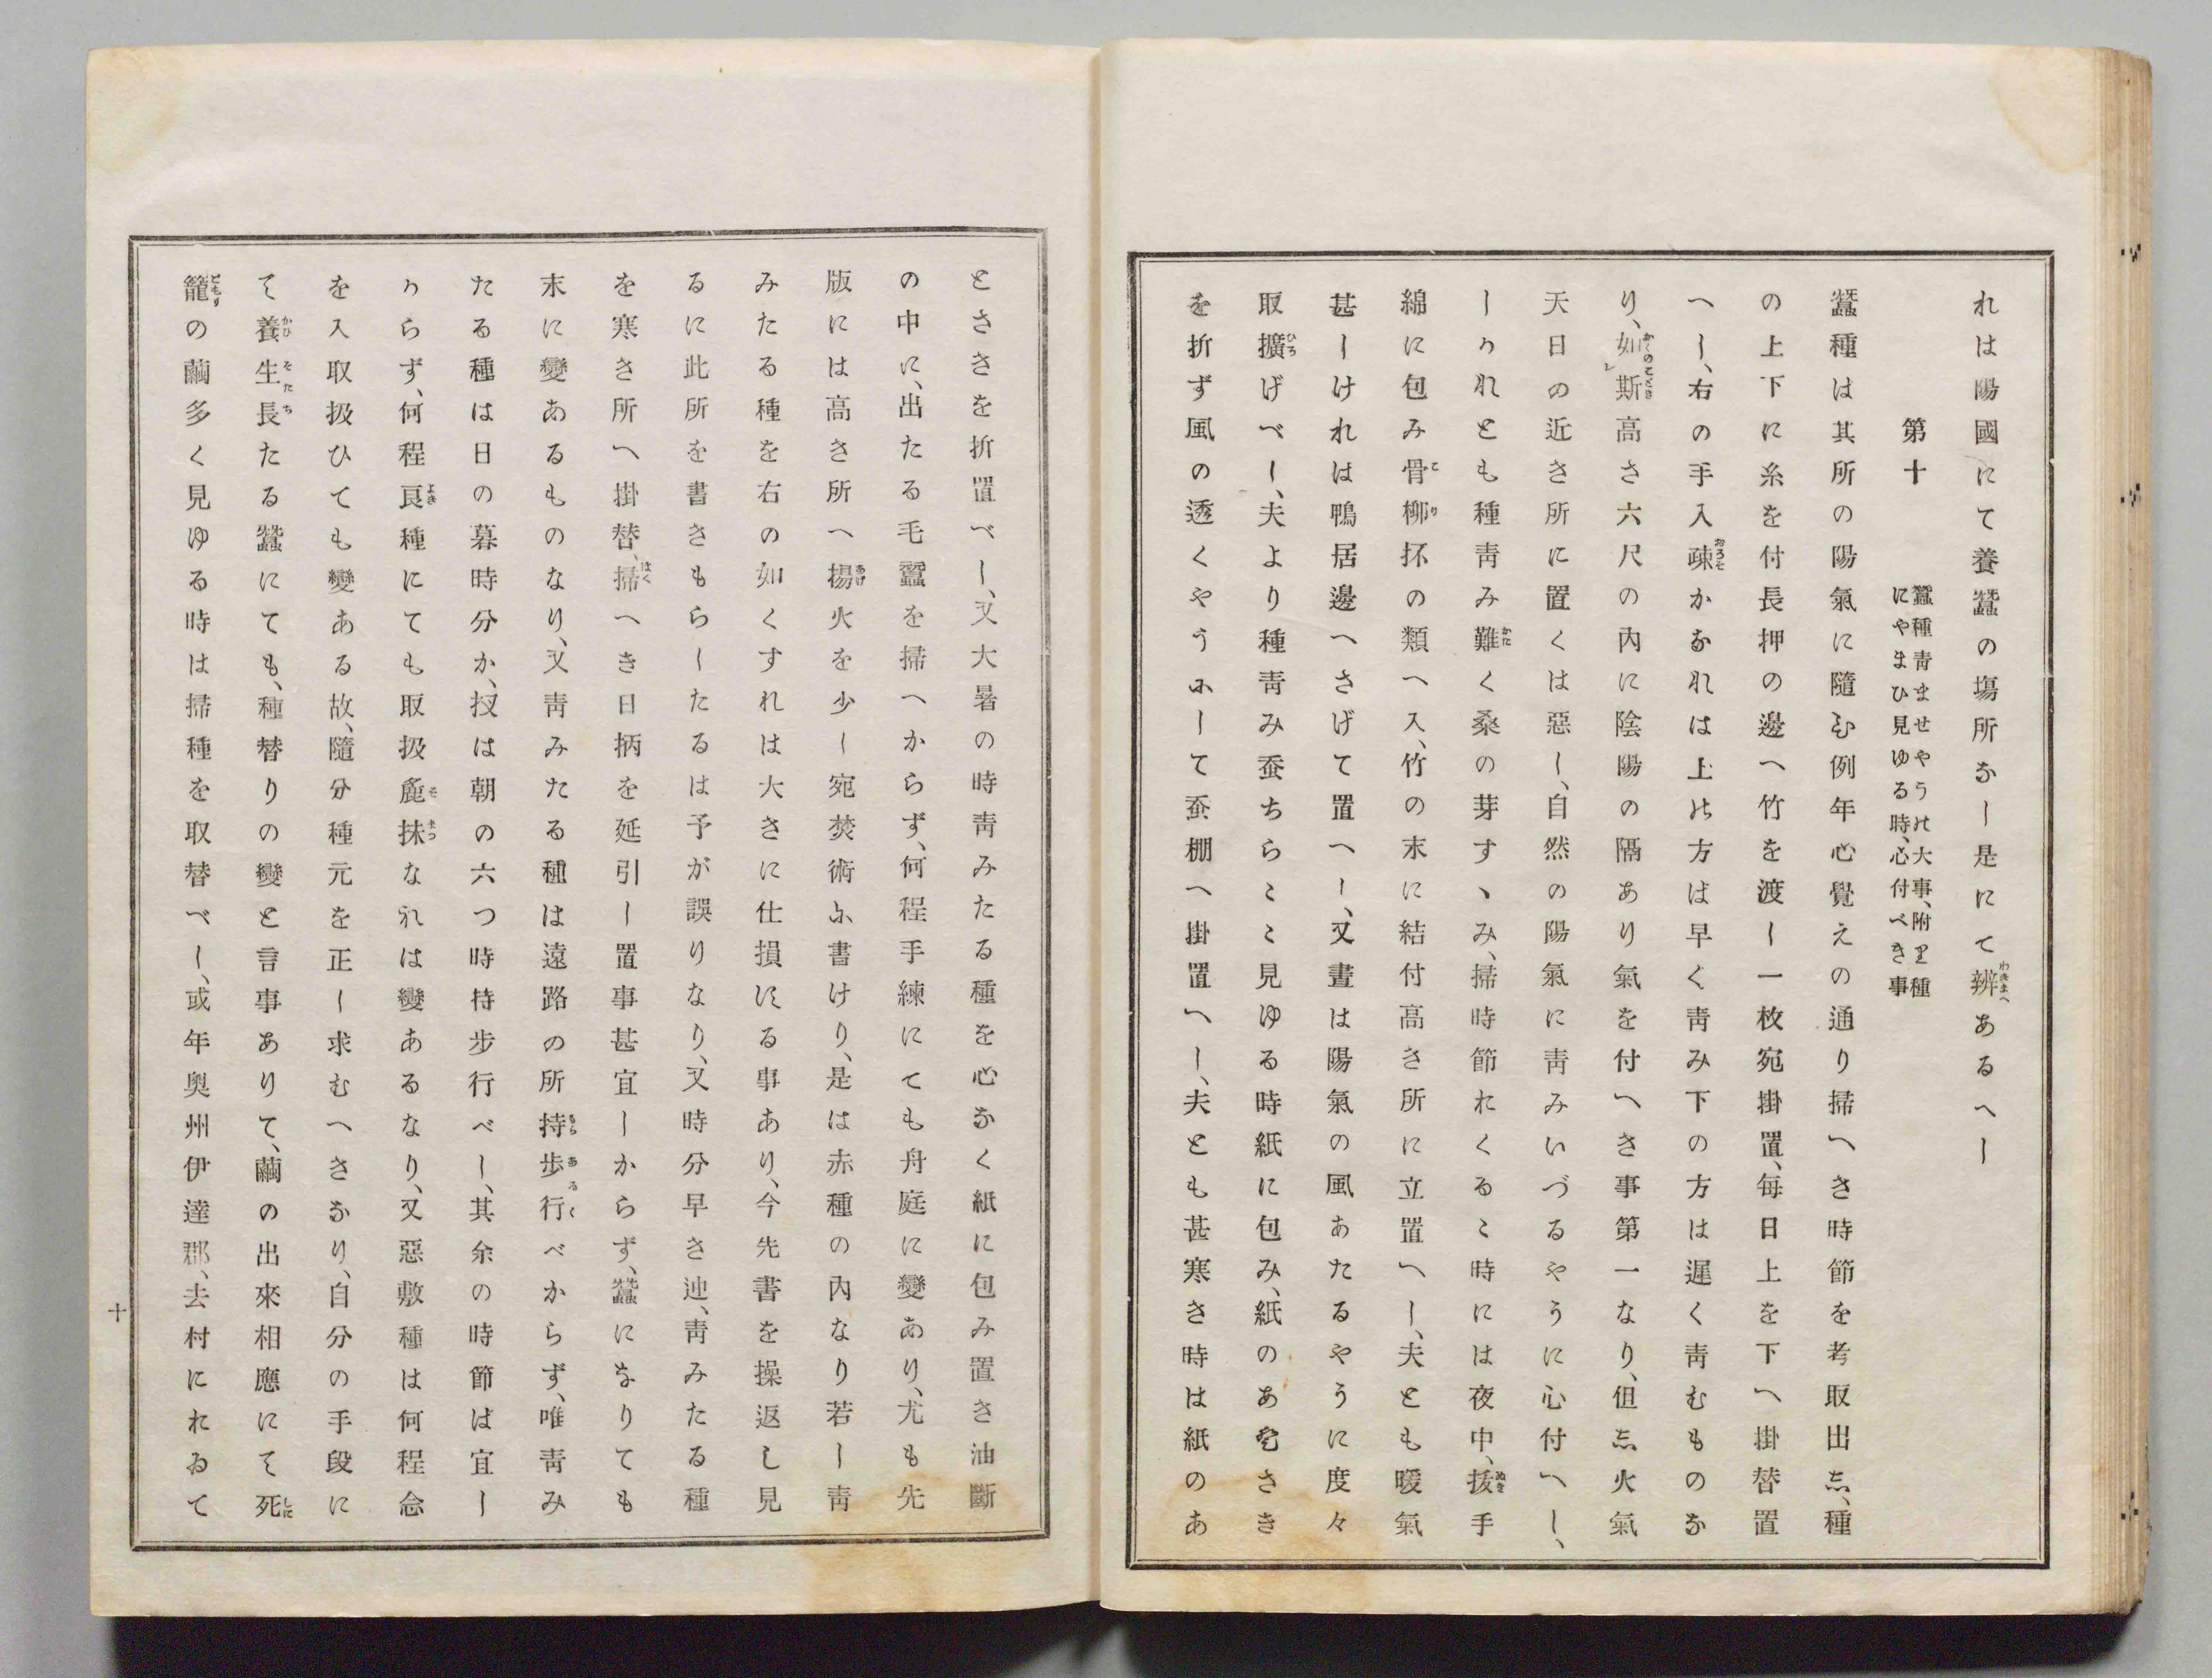 れは陽國にて養蠶の塲所なし是にて辨あるへし
第十 蠶種靑ませやうの大事、附り種にやまひ見ゆる時、心付べき事
蠶種は其所の陽氣に隨ひ例年心覺えの通り掃へき時節を考取出し、種
の上下に糸を付長押の邊へ竹を渡し一枚宛掛置、每日上を下へ掛替置
へし、右の手入疎かなれは上の方は早く靑み下の方は遲く靑むものな
り、如斯高さ六尺の內に陰陽の隔あり氣を付へき事第一なり、但し火氣
天日の近き所に置くは惡し、自然の陽氣に靑みいづるやうに心付へし、
しかれとも種靑み難く桑の芽すゝみ、掃時節れくるゝ時には夜中、拔手
綿に包み骨柳抔の類へ入、竹の末に結付高き所に立置へし、夫とも暖氣
甚しけれは鴨居邊へさげて置へし、又晝は陽氣の風あたるやうに度々
取擴げべし、夫より種靑み蚕ちらゝゝ見ゆる時紙に包み、紙のあをさき
を折ず風の透くやうにして蚕棚へ掛置へし、夫とも甚寒き時は紙のあ
とさきを折置べし、又大暑の時靑みたる種を心なく紙に包み置き油斷
の中に、出たる毛蠶を掃へからず、何程手練にても舟庭に變あり、尤も先
版には高き所へ揚火を少し宛焚術に書けり、是は赤種の內なり若し靑
みたる種を右の如くすれは大きに仕損にる事あり、今先書を操返し見
るに此所を書きもらしたるは予が誤りなり、又時分早き迚、靑みたる種
を寒き所へ掛替、掃へき日柄を延引し置事甚宜しからず、蠶になりても
末に變あるものなり、又靑みたる種は遠路の所持步行べからず、唯靑み
たる種は日の暮時分か、扨は朝の六つ時持步行べし、其余の時節は宜し
からず、何程良種にても取扱麁抹なれは變あるなり、又惡敷種は何程念
を入取扱ひても變ある故、隨分種元を正し求むへきなり、自分の手段に
て養生長たる蠶にても、種替りの變と言事ありて、繭の出來相應にて死
籠の繭多く見ゆる時は掃種を取替べし、或年奥州伊達郡、去村にれゐて
十